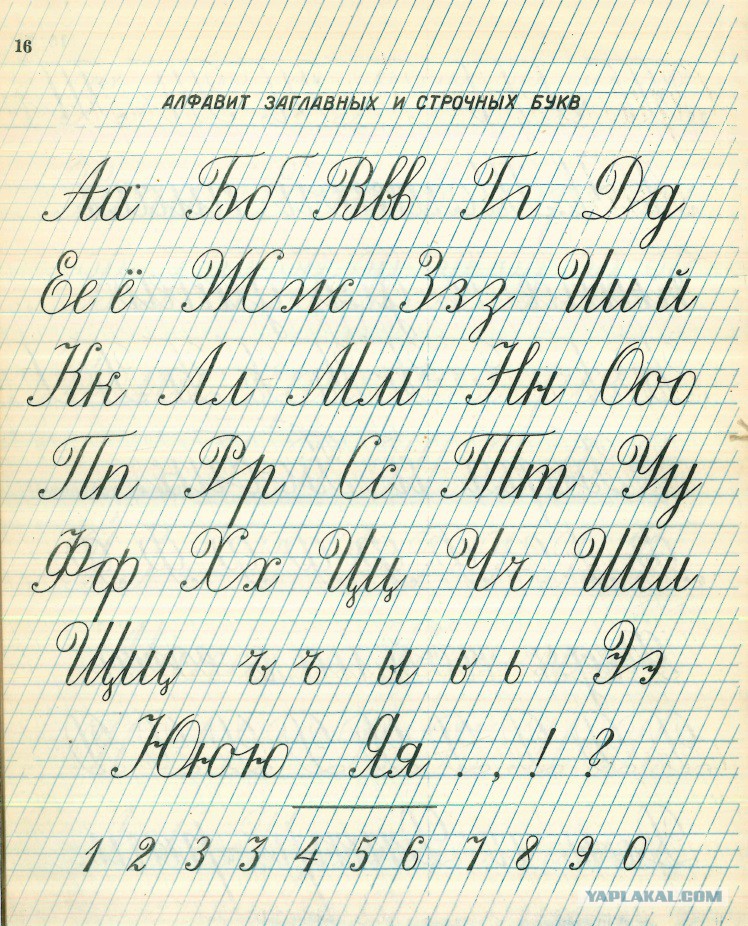 16
АЛФАВИТ ЗАГЛАВНЫХ И СТРОЧНЫХ БУКВ
Аа Бб Ввв Гг Дд
Ееё Жж Ззз Ии й
Кк Лл Мм Нн Ооо
Пп Рр Сс Тт Уу
Фф Хх Цц Чч Шш
Щщ ъ ъ ы ь ь Ээ
Ююю Яя . , ! ?
1 2 3 3 4 5 6 7 8 9 0
YAPLAKAL.COM